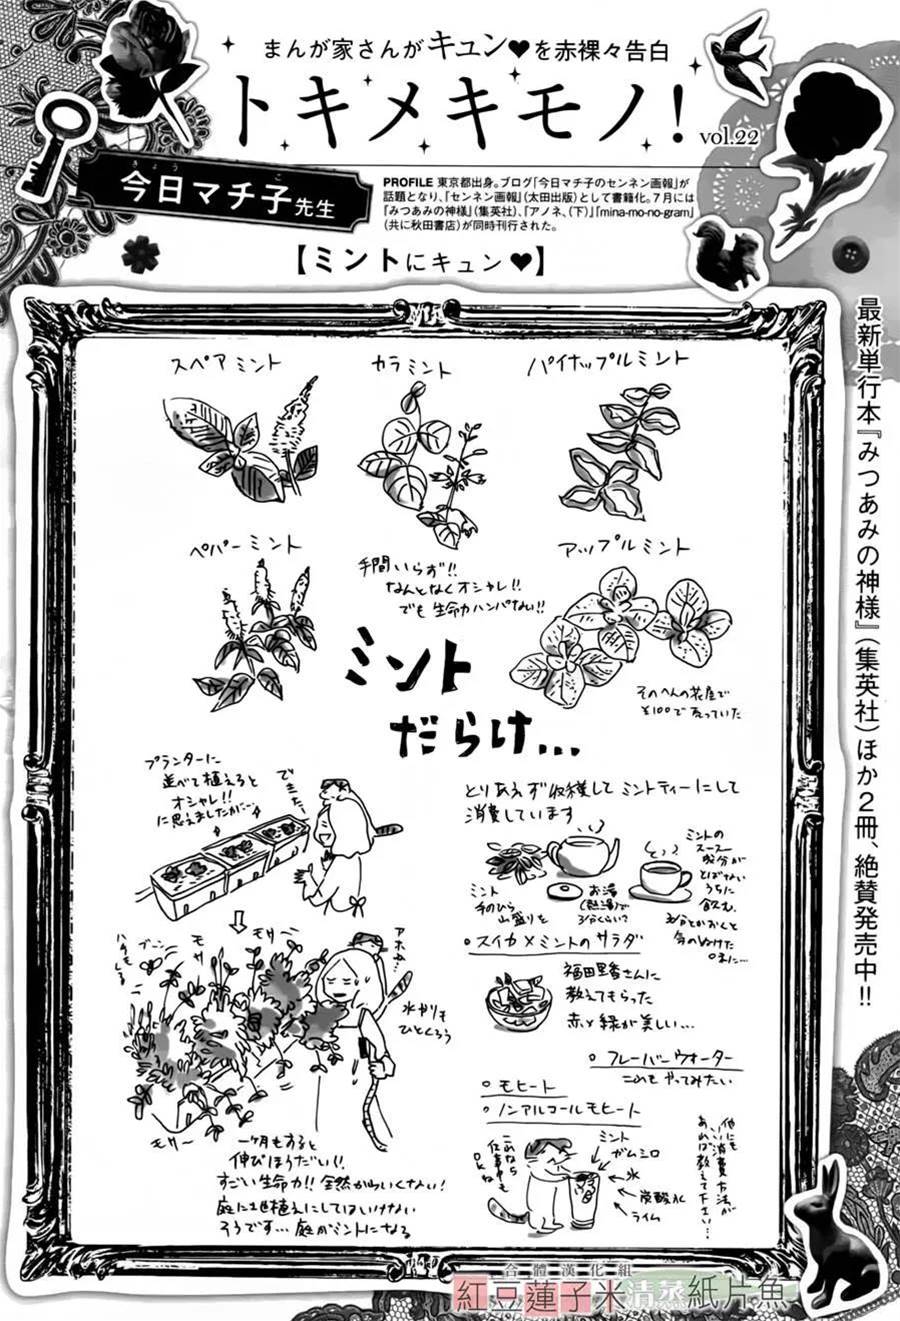 まんが家さんがキュン♥を赤裸々告白
トキメキモノ!
vol.22
きょう こ
今日マチ子先生
PROFILE 東京都出身。ブログ「今日マチ子のセンネン画報」が
話題となり、「センネン画報」(太田出版)として書籍化。7月には
『みつあみの神様』(集英社)、「アノネ、(下)」「mina-mo-no-gram」
(共に秋田書店)が同時刊行された。
【ミントにキュン♥】
最新単行本『みつあみの神様』(集英社)ほか2冊、絶賛発売中!!
スペアミント
カラミント
パイナップルミント
ペパーミント
アップルミント
手間いらず!!
なんとなくオシャレ!!
でも生命力ハンパない!!
ミント
だらけ…
そのへんの花屋で
¥100で売っていた
プランターに
並べて植えると
オシャレ!!
に思えましたが…
できた、
とりあえず収穫してミントティーにして
消費しています
ミント
手のひら
山盛りを
お湯
(熱湯)で
3分くらい?
ミントの
スースー
成分が
とばない
うちに
飲む。
○スイカ×ミントのサラダ
福田里香さんに
教えてもらった
赤×緑が美しい…
○フレーバーウォーター
これもやってみたい
○モヒート
○ノンアルコールモヒート
ミント
ガムシロ
氷
炭酸水
ライム
これなら
仕事中も
OKね
他にも
いい消費方法が
あれば教えて下さい…
ブーン
ハチもくる
モサ
モサ〜
アホね…
水やりも
ひとくろう
モサ〜
一ヶ月もすると
伸びほうだい!!
すごい生命力!! 全然かわいくない!
庭に地植えにしてはいけない
そうです…庭がミントになる
合體漢化組
紅豆蓮子米 清蒸紙片魚